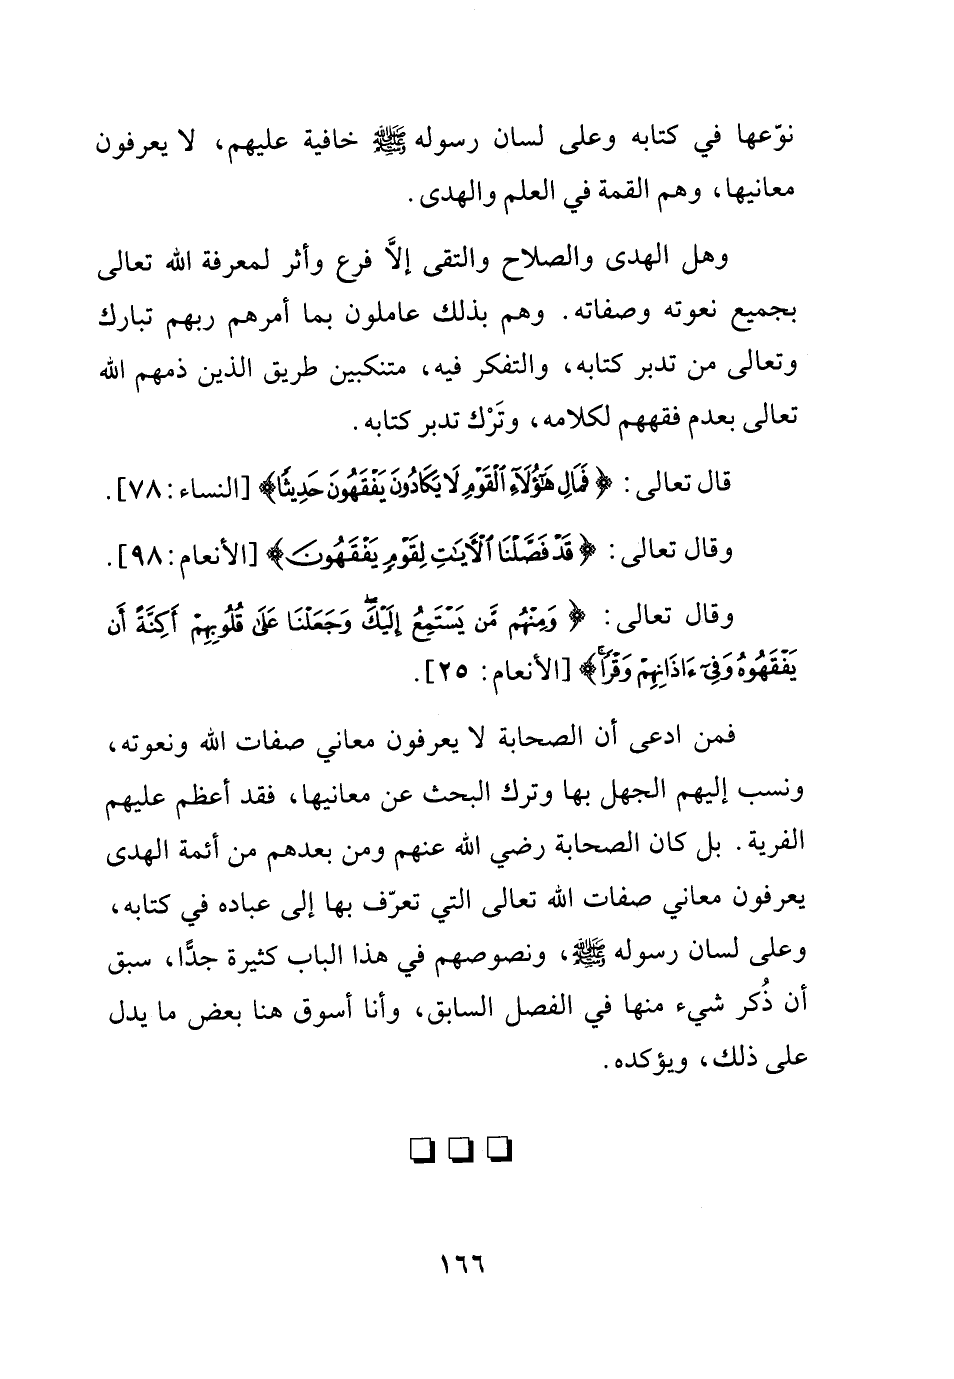 نوّعها في كتابه وعلى لسان رسوله ﷺ خافية عليهم، لا يعرفون
معانيها، وهم القمة في العلم والهدى.
وهل الهدى والصلاح والتقى إلاَّ فرع وأثر لمعرفة الله تعالى
بجميع نعوته وصفاته. وهم بذلك عاملون بما أمرهم ربهم تبارك
وتعالى من تدبر كتابه، والتفكر فيه، متنكبين طريق الذين ذمهم الله
تعالى بعدم فقههم لكلامه، وتَرْك تدبر كتابه.
قال تعالى: ﴿فَمَالِ هَٰٓؤُلَآءِ ٱلْقَوْمِ لَا يَكَادُونَ يَفْقَهُونَ حَدِيثًا﴾ [النساء: ٧٨].
وقال تعالى: ﴿قَدْ فَصَّلْنَا ٱلْأٓيَٰتِ لِقَوْمٍ يَفْقَهُونَ﴾ [الأنعام: ٩٨].
وقال تعالى: ﴿وَمِنْهُم مَّن يَسْتَمِعُ إِلَيْكَۖ وَجَعَلْنَا عَلَىٰ قُلُوبِهِمْ أَكِنَّةً أَن
يَفْقَهُوهُ وَفِىٓ ءَاذَانِهِمْ وَقْرًاۚ﴾ [الأنعام: ٢٥].
فمن ادعى أن الصحابة لا يعرفون معاني صفات الله ونعوته،
ونسب إليهم الجهل بها وترك البحث عن معانيها، فقد أعظم عليهم
الفرية. بل كان الصحابة رضي الله عنهم ومن بعدهم من أئمة الهدى
يعرفون معاني صفات الله تعالى التي تعرّف بها إلى عباده في كتابه،
وعلى لسان رسوله ﷺ، ونصوصهم في هذا الباب كثيرة جدًّا، سبق
أن ذُكر شيء منها في الفصل السابق، وأنا أسوق هنا بعض ما يدل
على ذلك، ويؤكده.
١٦٦